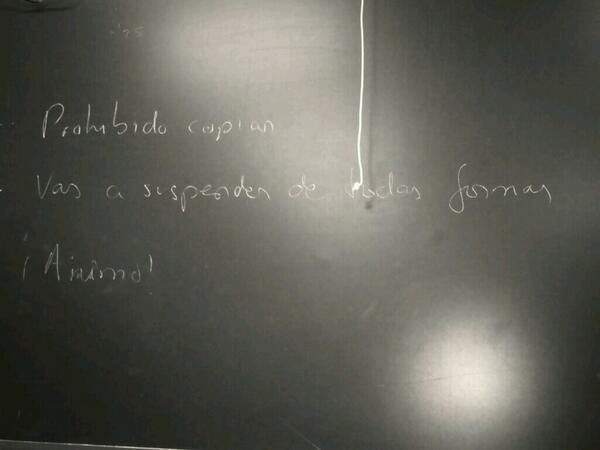 - Prohibido copiar
- Vas a suspender de todas formas
¡Animo!